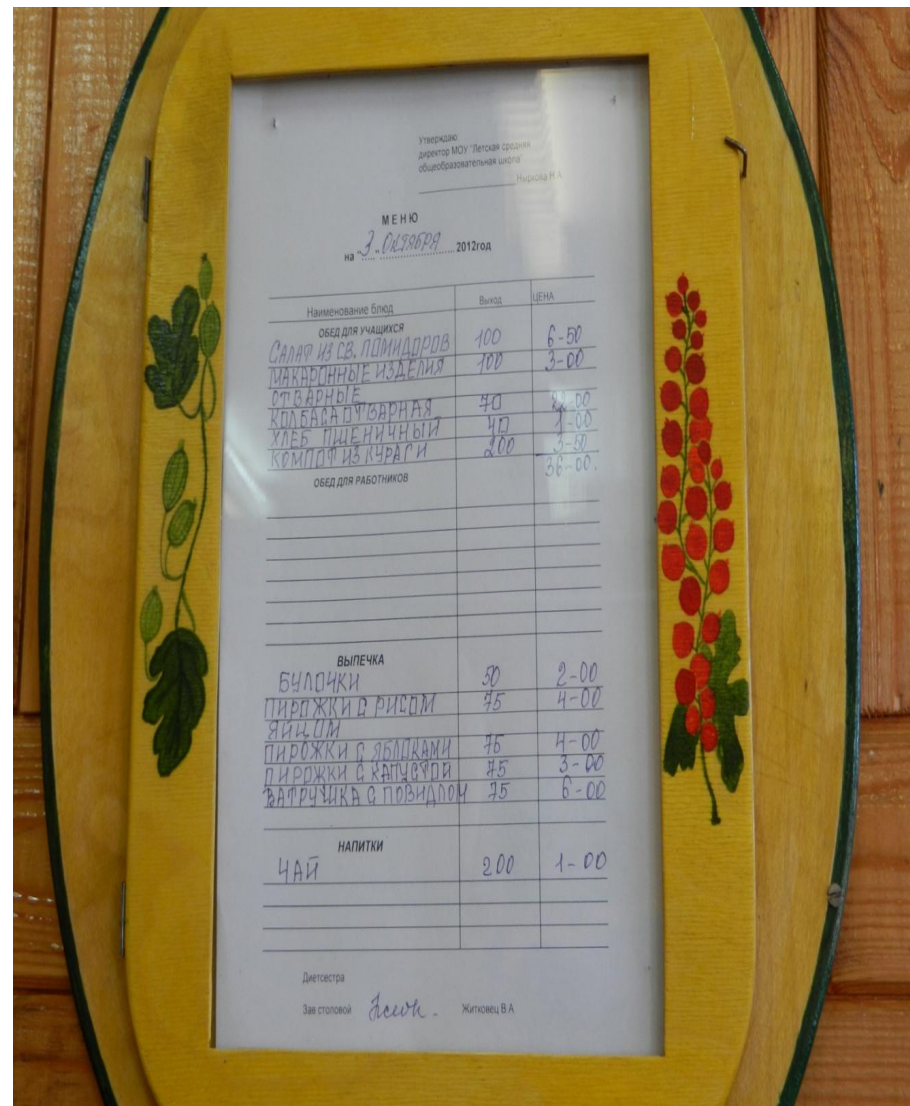 Утверждаю
директор МОУ "Летская средняя
общеобразовательная школа"
Ныркова Н.А.
МЕНЮ
на "3" ОКТЯБРЯ 2012год
Наименование блюд Выход ЦЕНА
ОБЕД ДЛЯ УЧАЩИХСЯ
САЛАТ ИЗ СВ. ПОМИДОРОВ 100 6-50
МАКАРОННЫЕ ИЗДЕЛИЯ 100 3-00
ОТВАРНЫЕ
КОЛБАСА ОТВАРНАЯ 70
ХЛЕБ ПШЕНИЧНЫЙ 40 1-00
КОМПОТ ИЗ КУРАГИ 200 3-50
36-00.
ОБЕД ДЛЯ РАБОТНИКОВ
ВЫПЕЧКА
БУЛОЧКИ 50 2-00
ПИРОЖКИ С РИСОМ 75 4-00
ЯЙЦОМ
ПИРОЖКИ С ЯБЛОКАМИ 75 4-00
ПИРОЖКИ С КАПУСТОЙ 75 3-00
ВАТРУШКА С ПОВИДЛОМ 75 6-00
НАПИТКИ
ЧАЙ 200 1-00
Диетсестра
Зав.столовой Житковец В.А.